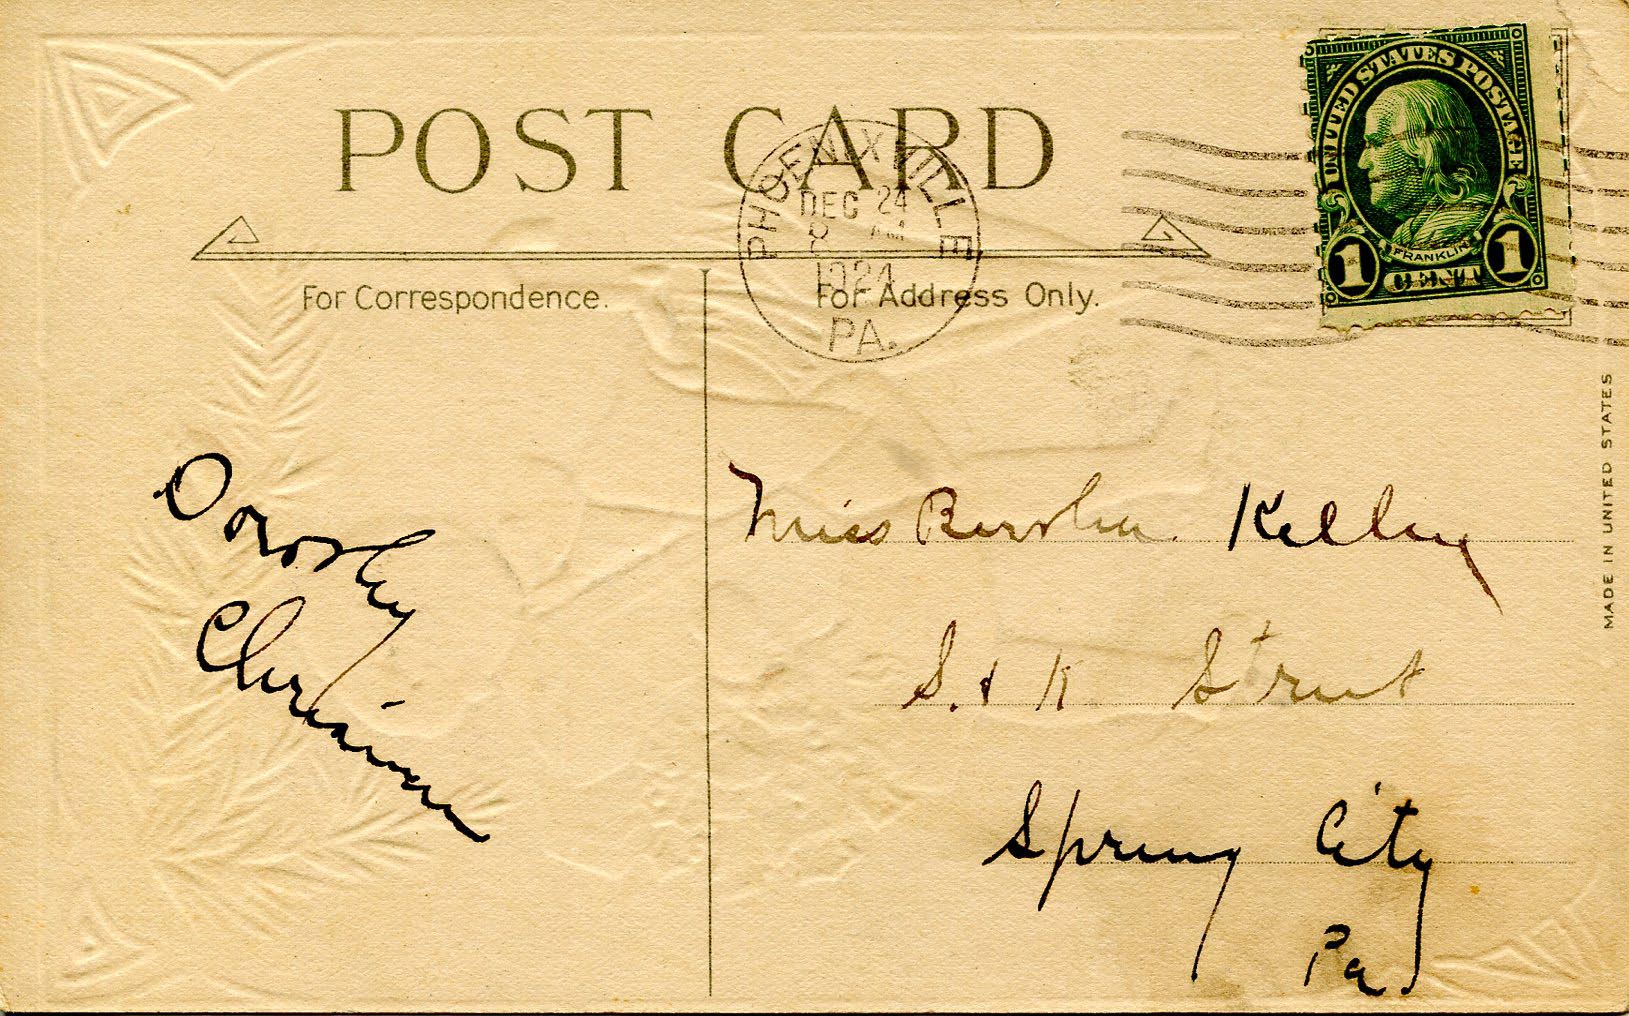 POST CARD
PHOENIXVILLE
DEC 24
8 AM
1924
PA.
UNITED STATES POSTAGE
FRANKLIN
1 CENT 1
For Correspondence.
For Address Only.
Dorothy
Miss Bertha Kelley
S. & K Street
Spring City
Pa.
MADE IN UNITED STATES